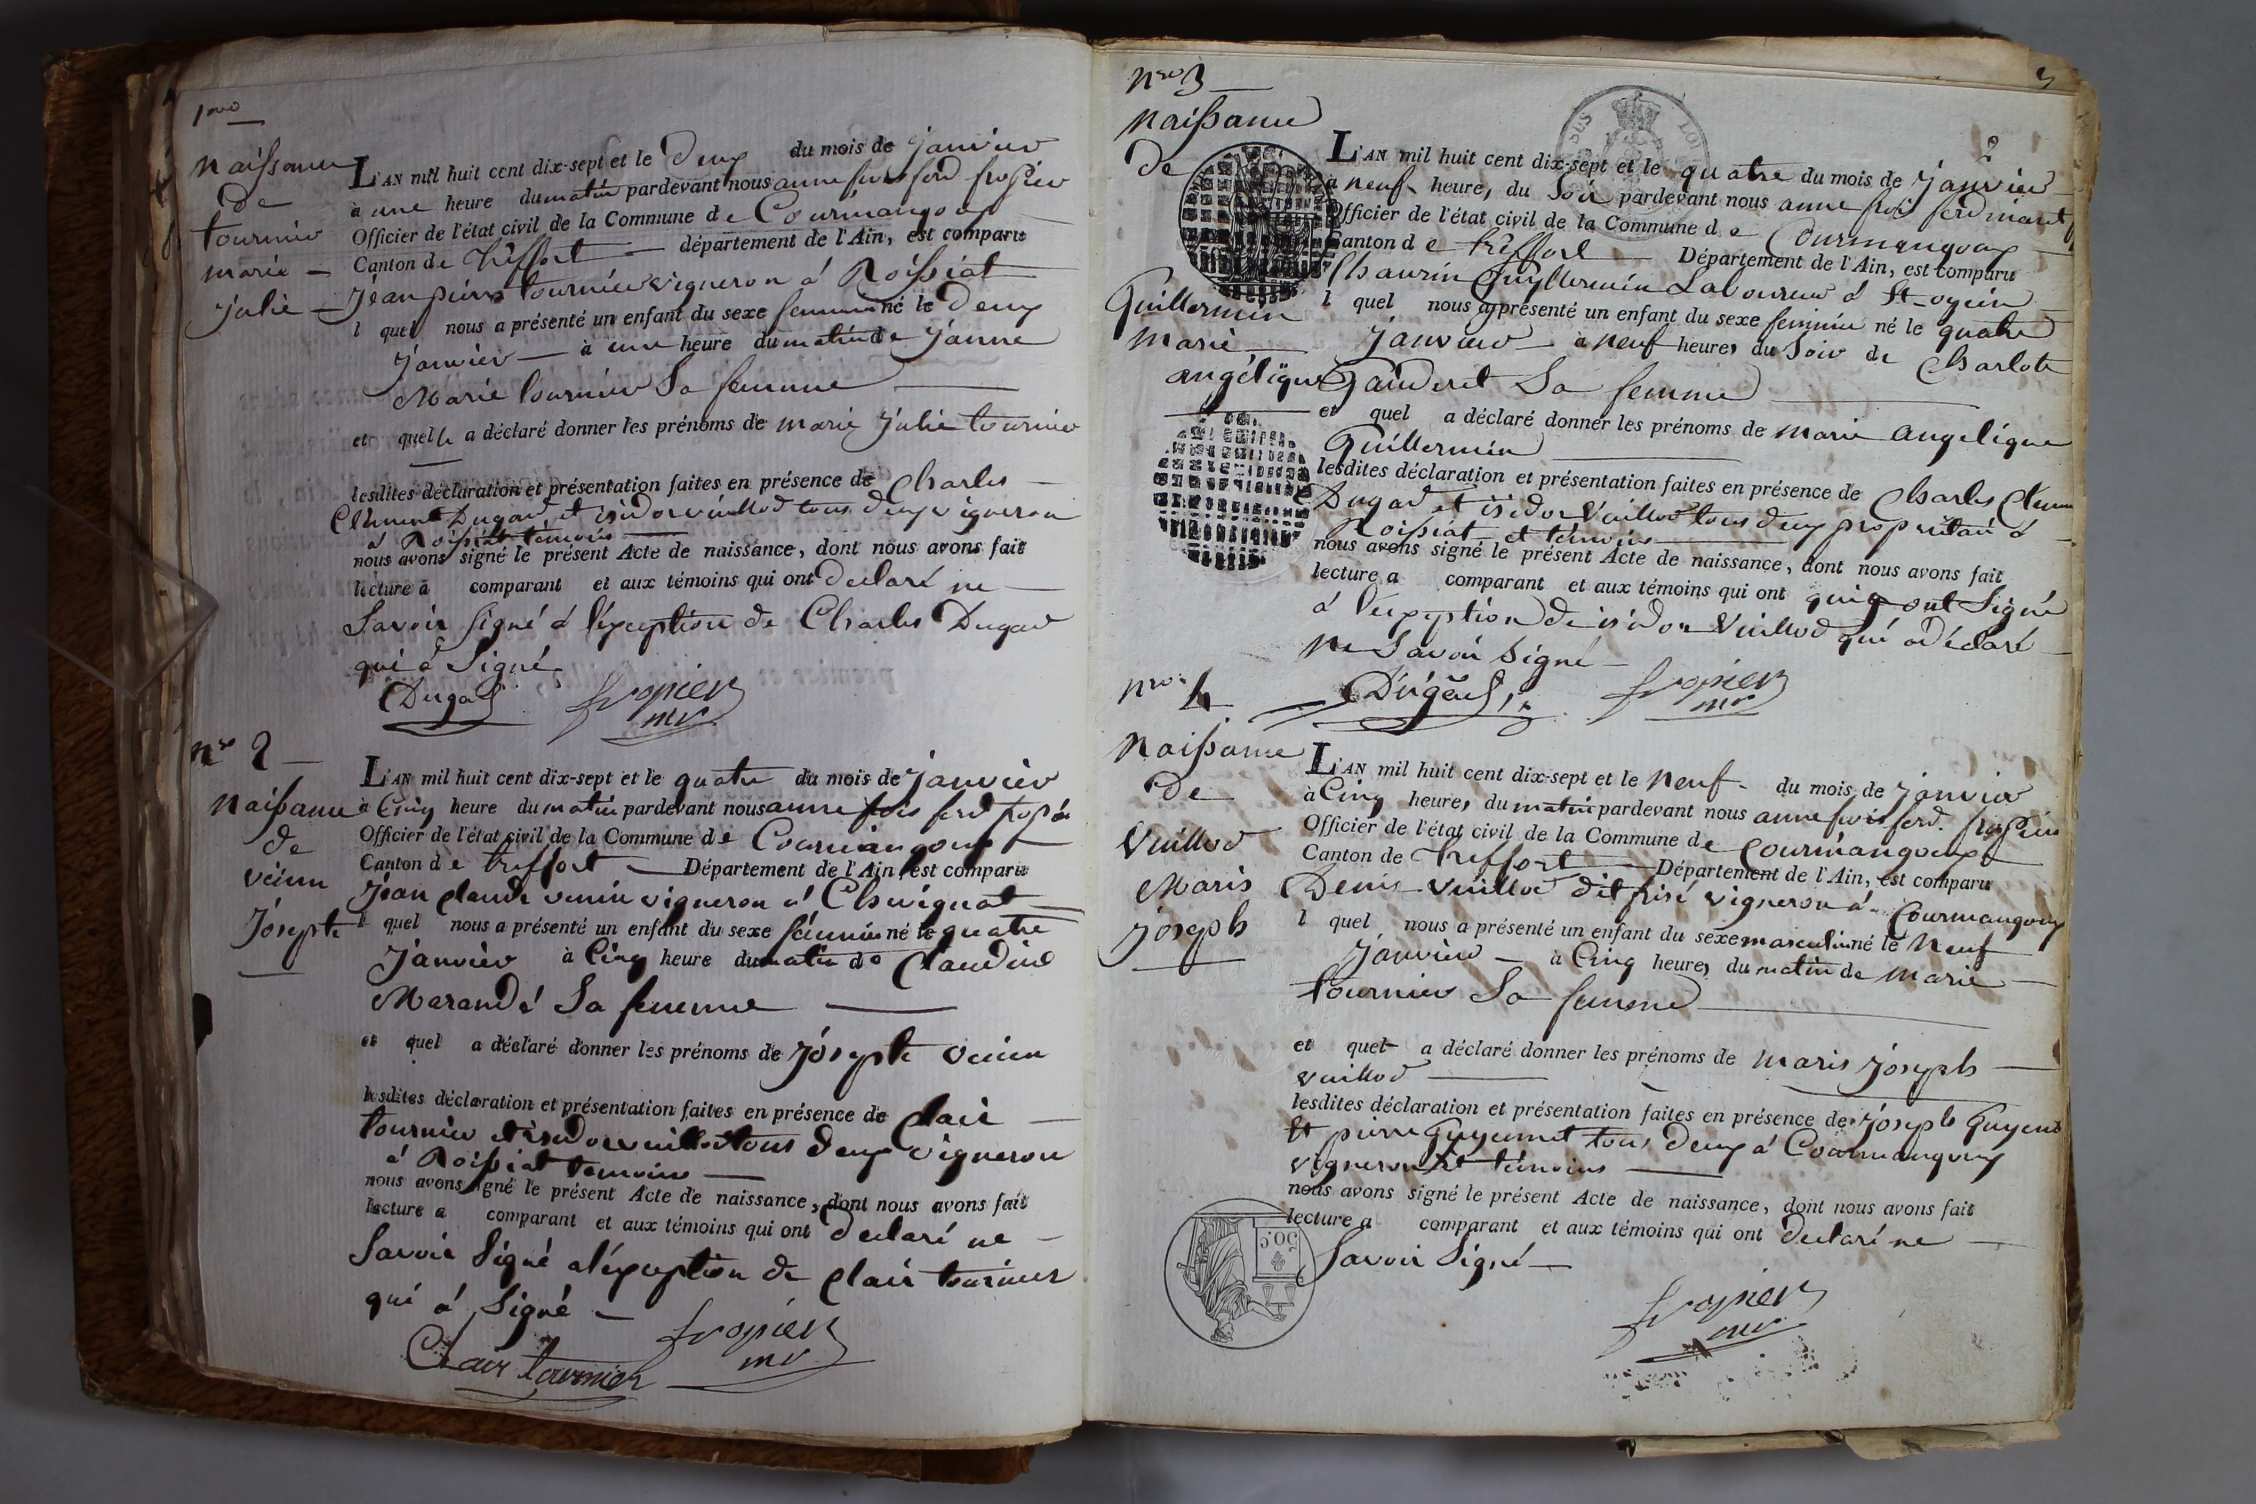 1ero
Naissance
de
tournier
marie
julie
L'AN mil huit cent dix-sept et le Deux du mois de janvier
à une heure du matin pardevant nous anne fois ferd fropier
Officier de l'état civil de la Commune de Courmangoux
Canton de treffort département de l'Ain, est comparu
Jean pierre tournier vigneron à Roissiat
l quel nous a présenté un enfant du sexe feminin né le Deux
janvier à une heure du matin de jeanne
Marie tournier Sa femme
et quelle a déclaré donner les prénoms de marie julie tournier
lesdites déclaration et présentation faites en présence de Charles
Clement Dugad et isidor vuillod tous deux vigneron
à Roissiat temoins
nous avons signé le présent Acte de naissance, dont nous avons fait
lecture a comparant et aux témoins qui ont declaré ne
Savoir signé à l'exception de Charles Dugad
qui à Signé
Dugad fropier
mr
Nro 2
Naissance
de
Josephte
L'AN mil huit cent dix-sept et le quatre du mois de janvier
à Cinq heure du matin pardevant nous anne fois ferd fropier
Officier de l'état civil de la Commune de Courmangoux
Canton de treffort Département de l'Ain, est comparu
Jean claude vigneron à Chevignat
l quel nous a présenté un enfant du sexe féminin né le quatre
Janvier à Cinq heure du matin de Claudine
Marandé Sa femme
et quel a déclaré donner les prénoms de Josephte
lesdites déclaration et présentation faites en présence de Clair
tournier et isidor vuillod tous deux vigneron
à Roissiat temoins
nous avons signé le présent Acte de naissance, dont nous avons fait
lecture a comparant et aux témoins qui ont declaré ne
Savoir Signé a l'exception de Clair tournier
qui à Signé
Clair tournier fropier
mr
3
2
Nro 3
Naissance
de
Guillermin
Marie
angélique
L'AN mil huit cent dix-sept et le quatre du mois de Janvier
à neuf heures du Soir pardevant nous anne fois ferdinand
Officier de l'état civil de la Commune de Courmangoux
Canton de treffort Département de l'Ain, est comparu
Guyllermin Laboureur à St oyein
l quel nous a présenté un enfant du sexe feminin né le quatre
Janvier à neuf heures du Soir de Charlote
Sa femme
et quel a déclaré donner les prénoms de marie angelique
Guillermin
lesdites déclaration et présentation faites en présence de Charles Clemen
Dugad et isidor Vuillod tous deux propriétair à
Roissiat et temoins
nous avons signé le présent Acte de naissance, dont nous avons fait
lecture a comparant et aux témoins qui ont quiq ont Signé
à l'exception de isidor Vuillod qui a déclaré
ne Savoir Signé
Dugad fropier
mr
Nro 4
Naissance
de
Vuillod
Maris
joseph
L'AN mil huit cent dix-sept et le Neuf du mois de janvier
à Cinq heures du matin pardevant nous anne fois ferd. fropier
Officier de l'état civil de la Commune de Courmangoux
Canton de treffort Département de l'Ain, est comparu
Denis vuillod dit frisé vigneron à Courmangoux
l quel nous a présenté un enfant du sexe masculin né le Neuf
Janvier à Cinq heures du matin de Marie
tournier Sa femme
et quel a déclaré donner les prénoms de Maris joseph
vuillod
lesdites déclaration et présentation faites en présence de joseph Guyenet
Et pierre Guyennet tous deux à Courmangoux
vigneron Et témoins
nous avons signé le présent Acte de naissance, dont nous avons fait
lecture a comparant et aux témoins qui ont declaré ne
Savoir Signé
fropier
mr
50.c